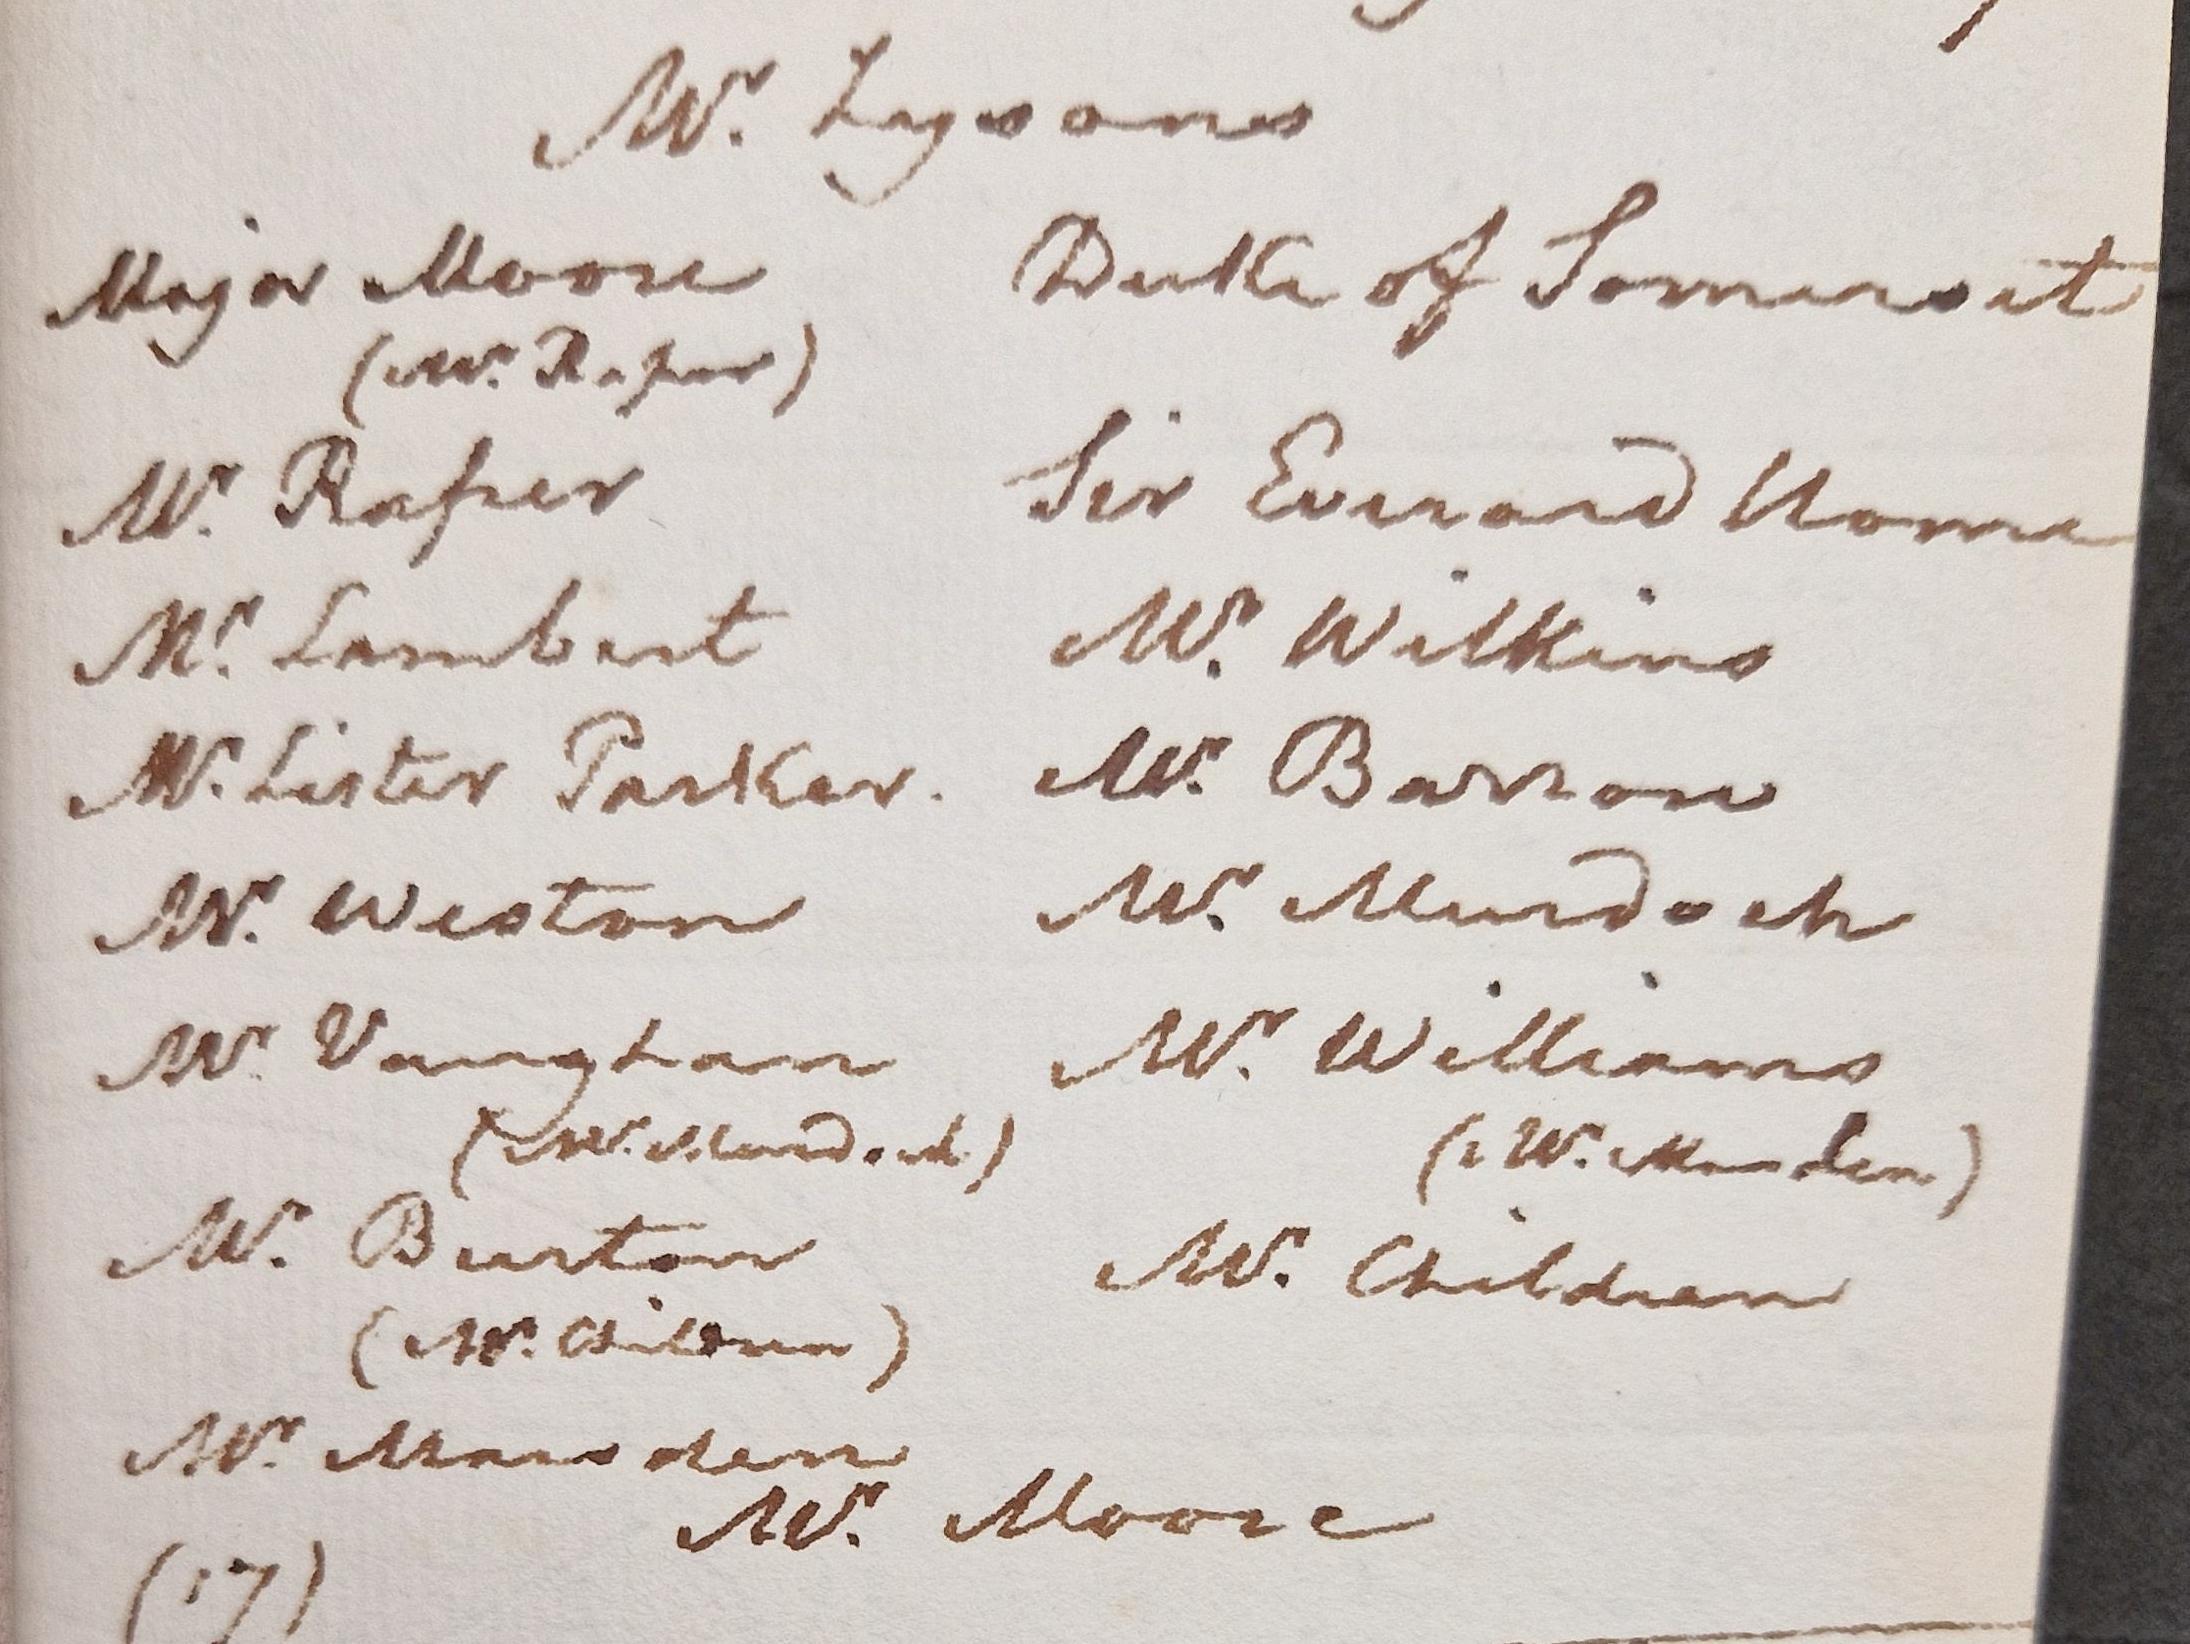 Mr. Lysons
Major Moore Duke of Somerset
(Mr. Raper)
Mr. Raper Sir Everard Home
Mr. Lambert Mr. Wilkins
Mr. Lister Parker. Mr. Barrow
Mr. Weston Mr. Murdoch
Mr. Vaughan Mr. Williams
(Mr. Murdoch) (Mr. Marsden)
Mr. Burton Mr. Children
(Mr. Children)
Mr. Marsden
Mr. Moore
(17)